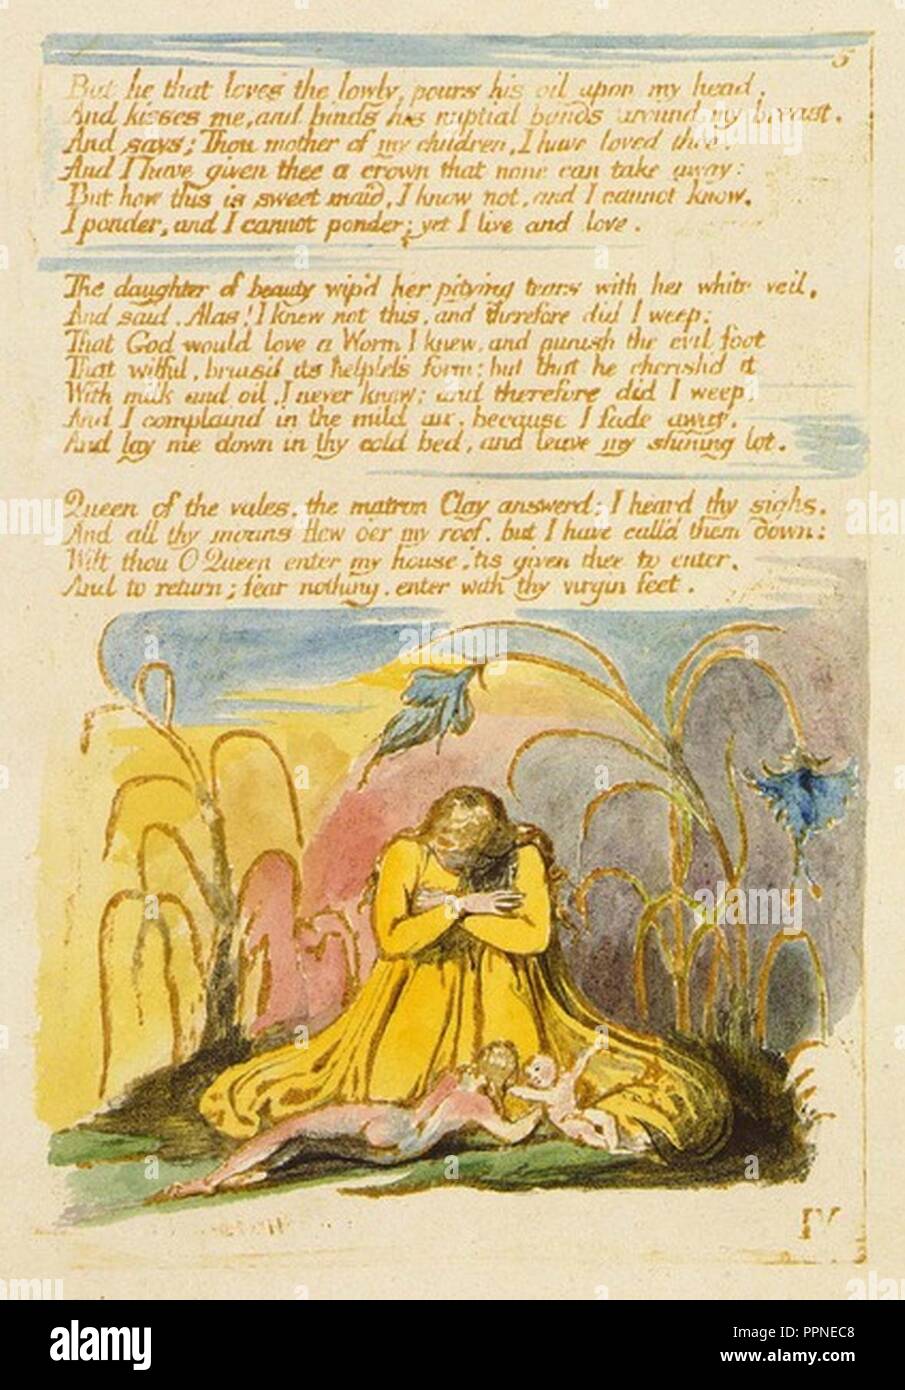 5
But he that loves the lowly, pours his oil upon my head,
And kisses me, and binds his nuptial bands around my breast.
And says; Thou mother of my children, I have loved thee.
And I have given thee a crown that none can take away:
But how this is sweet maid, I know not, and I cannot know,
I ponder, and I cannot ponder; yet I live and love.
The daughter of beauty wip'd her pitying tears with her white veil,
And said, Alas! I knew not this, and therefore did I weep:
That God would love a Worm I knew, and punish the evil foot
That wilful, bruis'd its helpless form: but that he cherish'd it
With milk and oil, I never knew; and therefore did I weep,
And I complaind in the mild air, because I fade away,
And lay me down in thy cold bed, and leave my shining lot.
Queen of the vales, the matron Clay answerd; I heard thy sighs.
And all thy moans flew o'er my roof, but I have call'd them down:
Wilt thou O Queen enter my house, 'tis given thee to enter,
And to return; fear nothing, enter with thy virgin feet.
IV
alamy
Image ID: PPNEC8
www.alamy.com